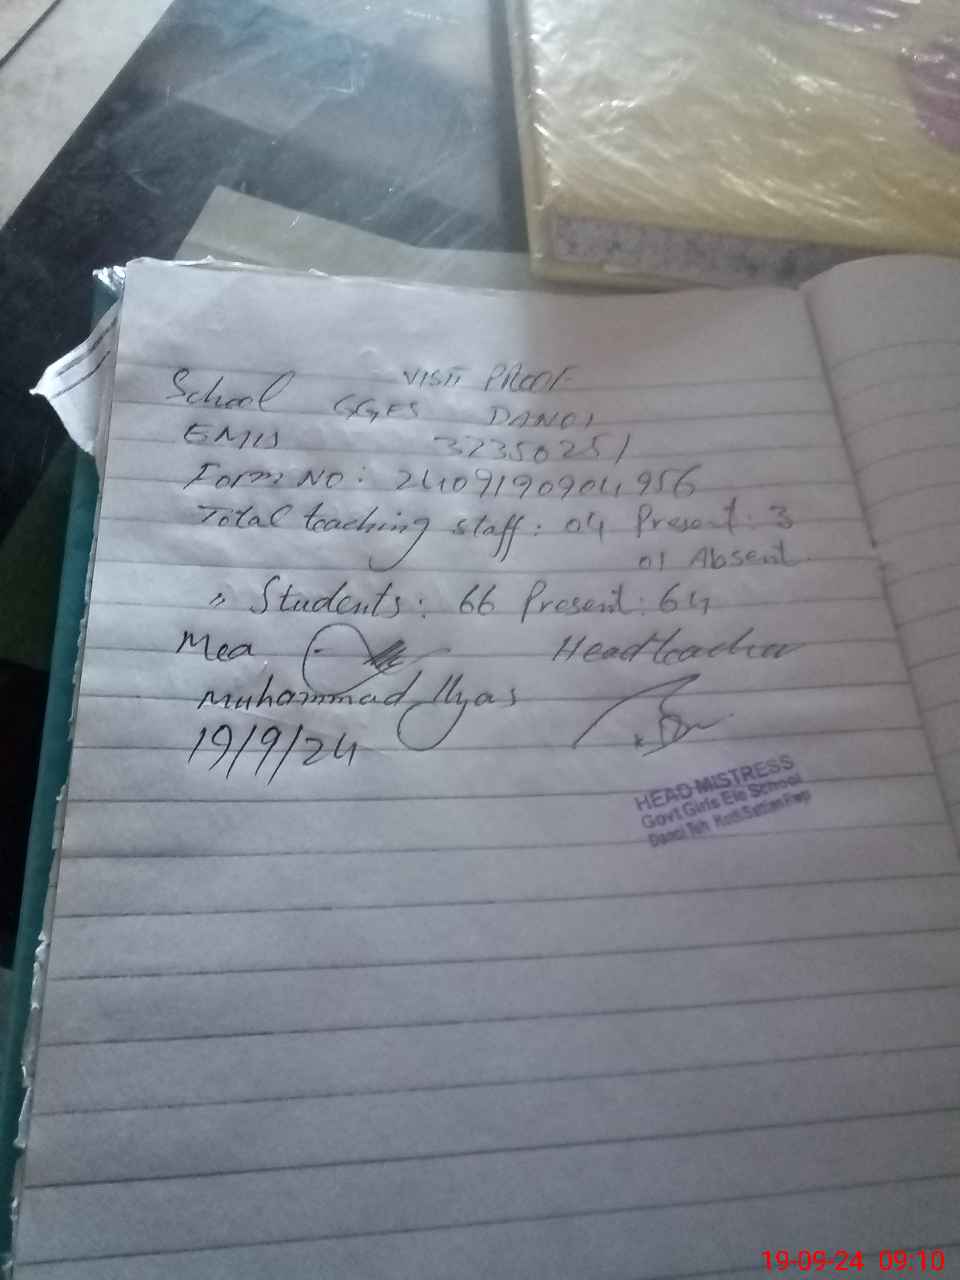 VISIT PROOF
School GGES DANOI
EMIS 37350251
Form NO: 2409190904956
Total teaching staff: 04 Present: 3
01 Absent
" Students: 66 Present: 64
Mea Headteacher
Muhammad Ilyas
19/9/24
HEAD MISTRESS
Govt Girls Ele School
Danoi Teh Kotli Sattian Rwp
19-09-24 09:10